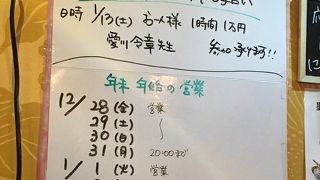 占い
日時 1/13(土) お一人様 1時間1万円
愛川令章先生 参加承ります!!
年末年始の営業
12/28(金) 営業
29(土) 〜
30(日)
31(月) 20:00まで
1/1(火) 営業